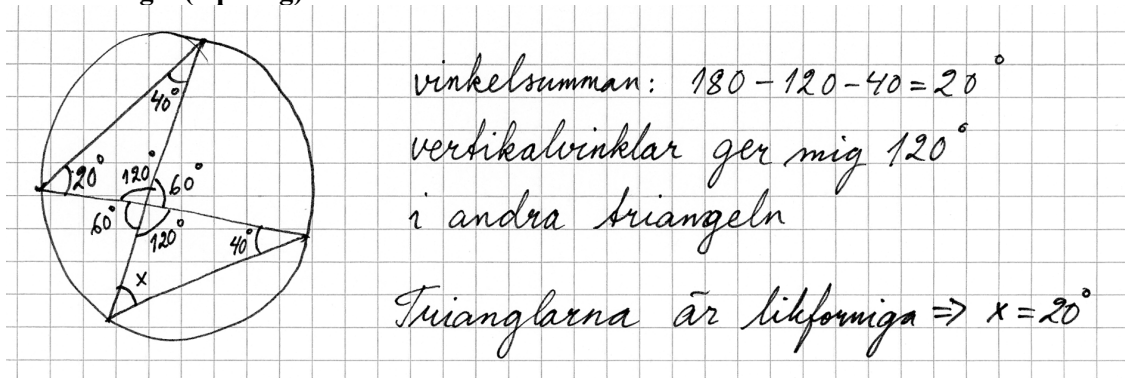 40°
20°
120°
60°
60°
120°
40°
x
vinkelsumman: 180 - 120 - 40 = 20°
vertikalvinklar ger mig 120°
i andra triangeln
Trianglarna är likformiga => x = 20°